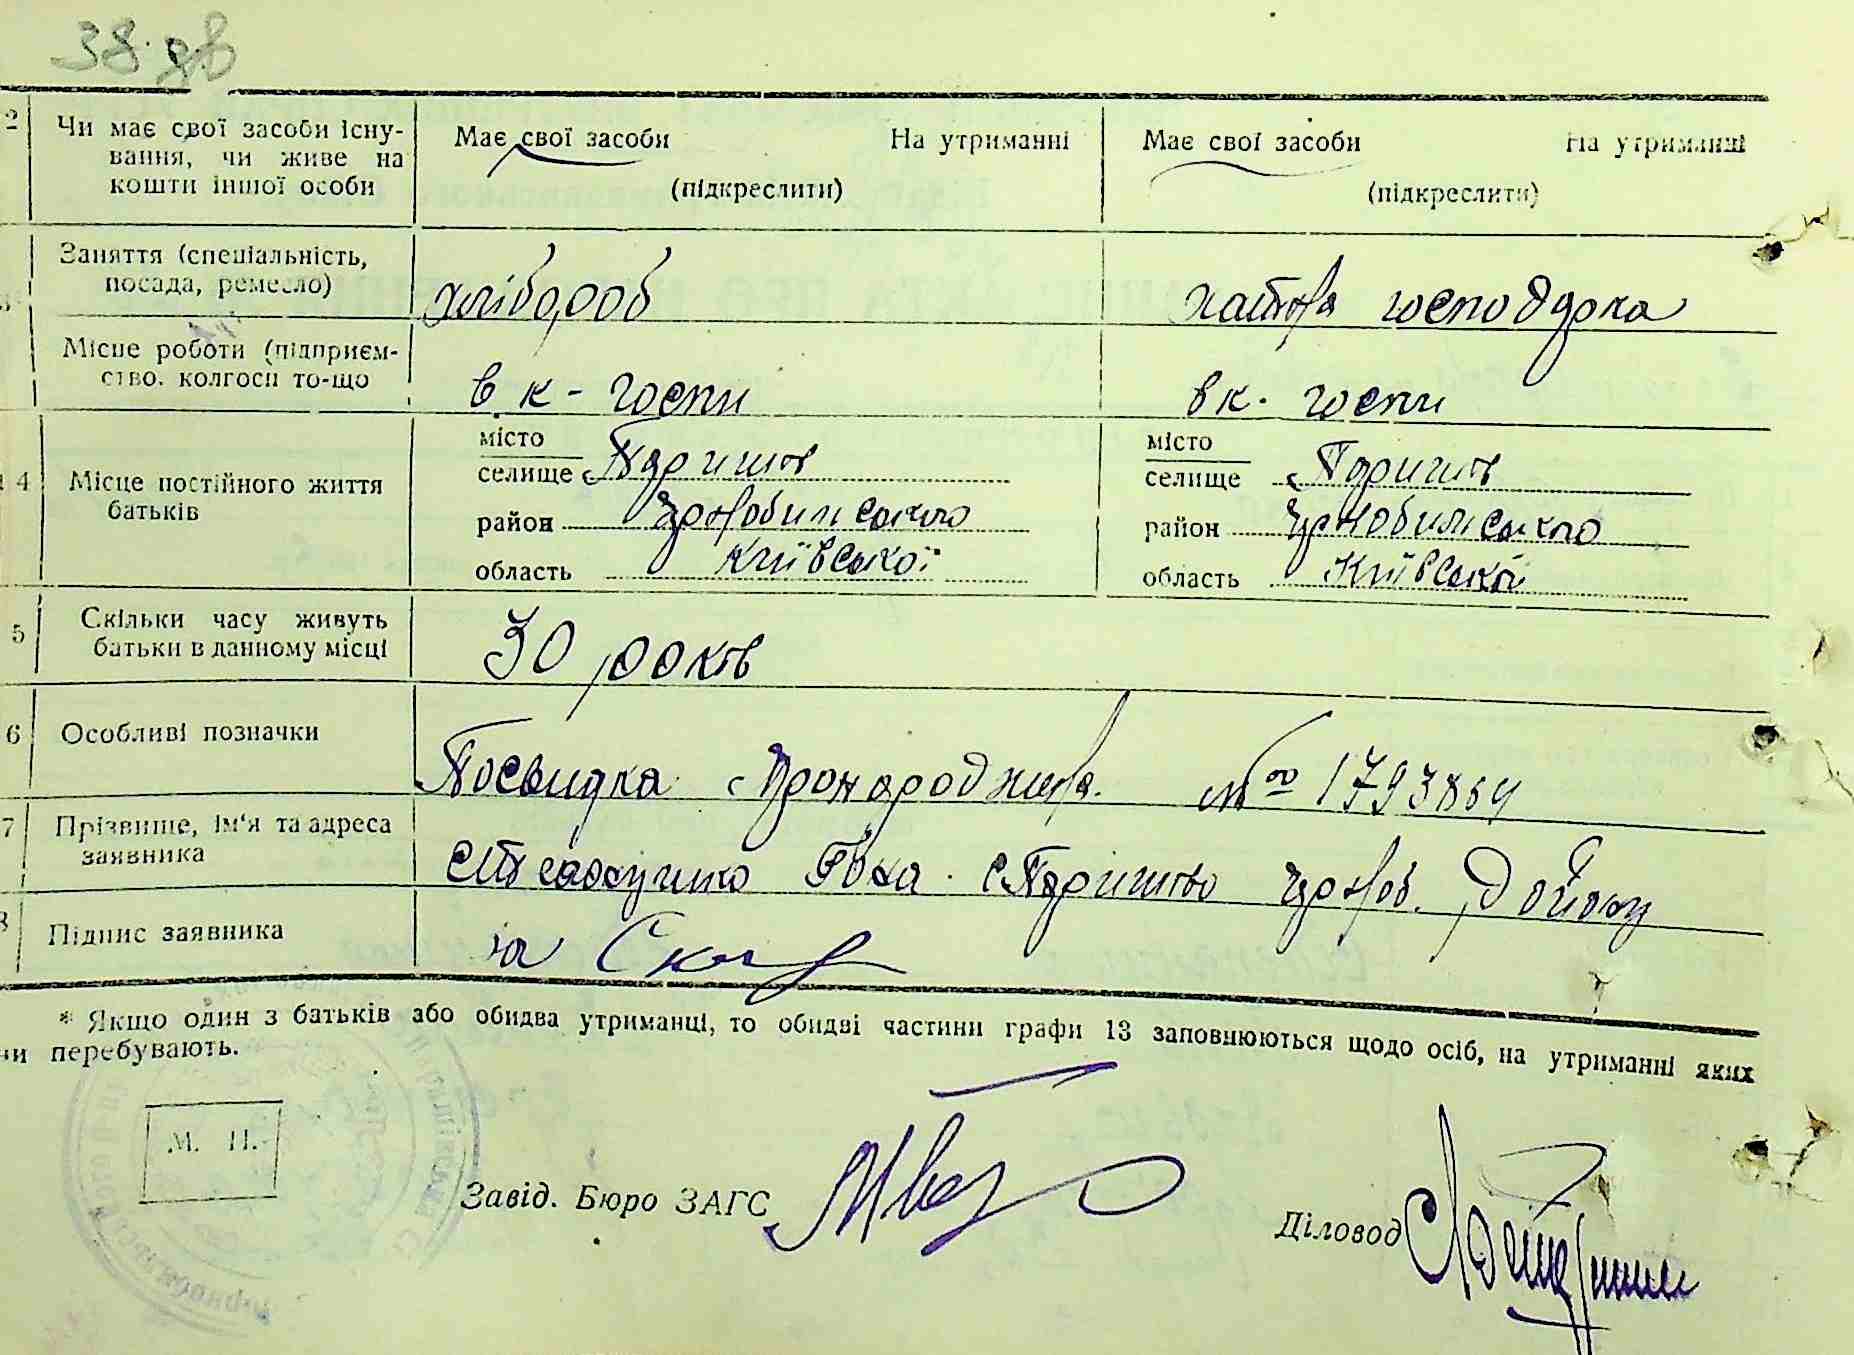 38 зв
2 Чи має свої засоби існу- Має свої засоби На утриманні Має свої засоби На утриманні
вання, чи живе на
кошти іншої особи (підкреслити) (підкреслити)
Заняття (спеціальність,
посада, ремесло) хлібороб хатня господарка
Місце роботи (підприєм-
ство, колгосп то-що в к-госпи в к. госпи
місто місто
селище с Паришів селище с Паришів
14 Місце постійного життя
батьків район Чорнобильського район Чорнобильського
область Київської область Київської
5 Скільки часу живуть
батьки в данному місці 30 років
6 Особливі позначки Посвидка про народження № 1793854
7 Прізвище, ім'я та адреса
заявника с Паришів Чорноб. Району
8 Підпис заявника
* Якщо один з батьків або обидва утриманці, то обидві частини графи 13 заповнюються щодо осіб, на утриманні яких
ни перебувають.
М. П.
Завід. Бюро ЗАГС
Діловод